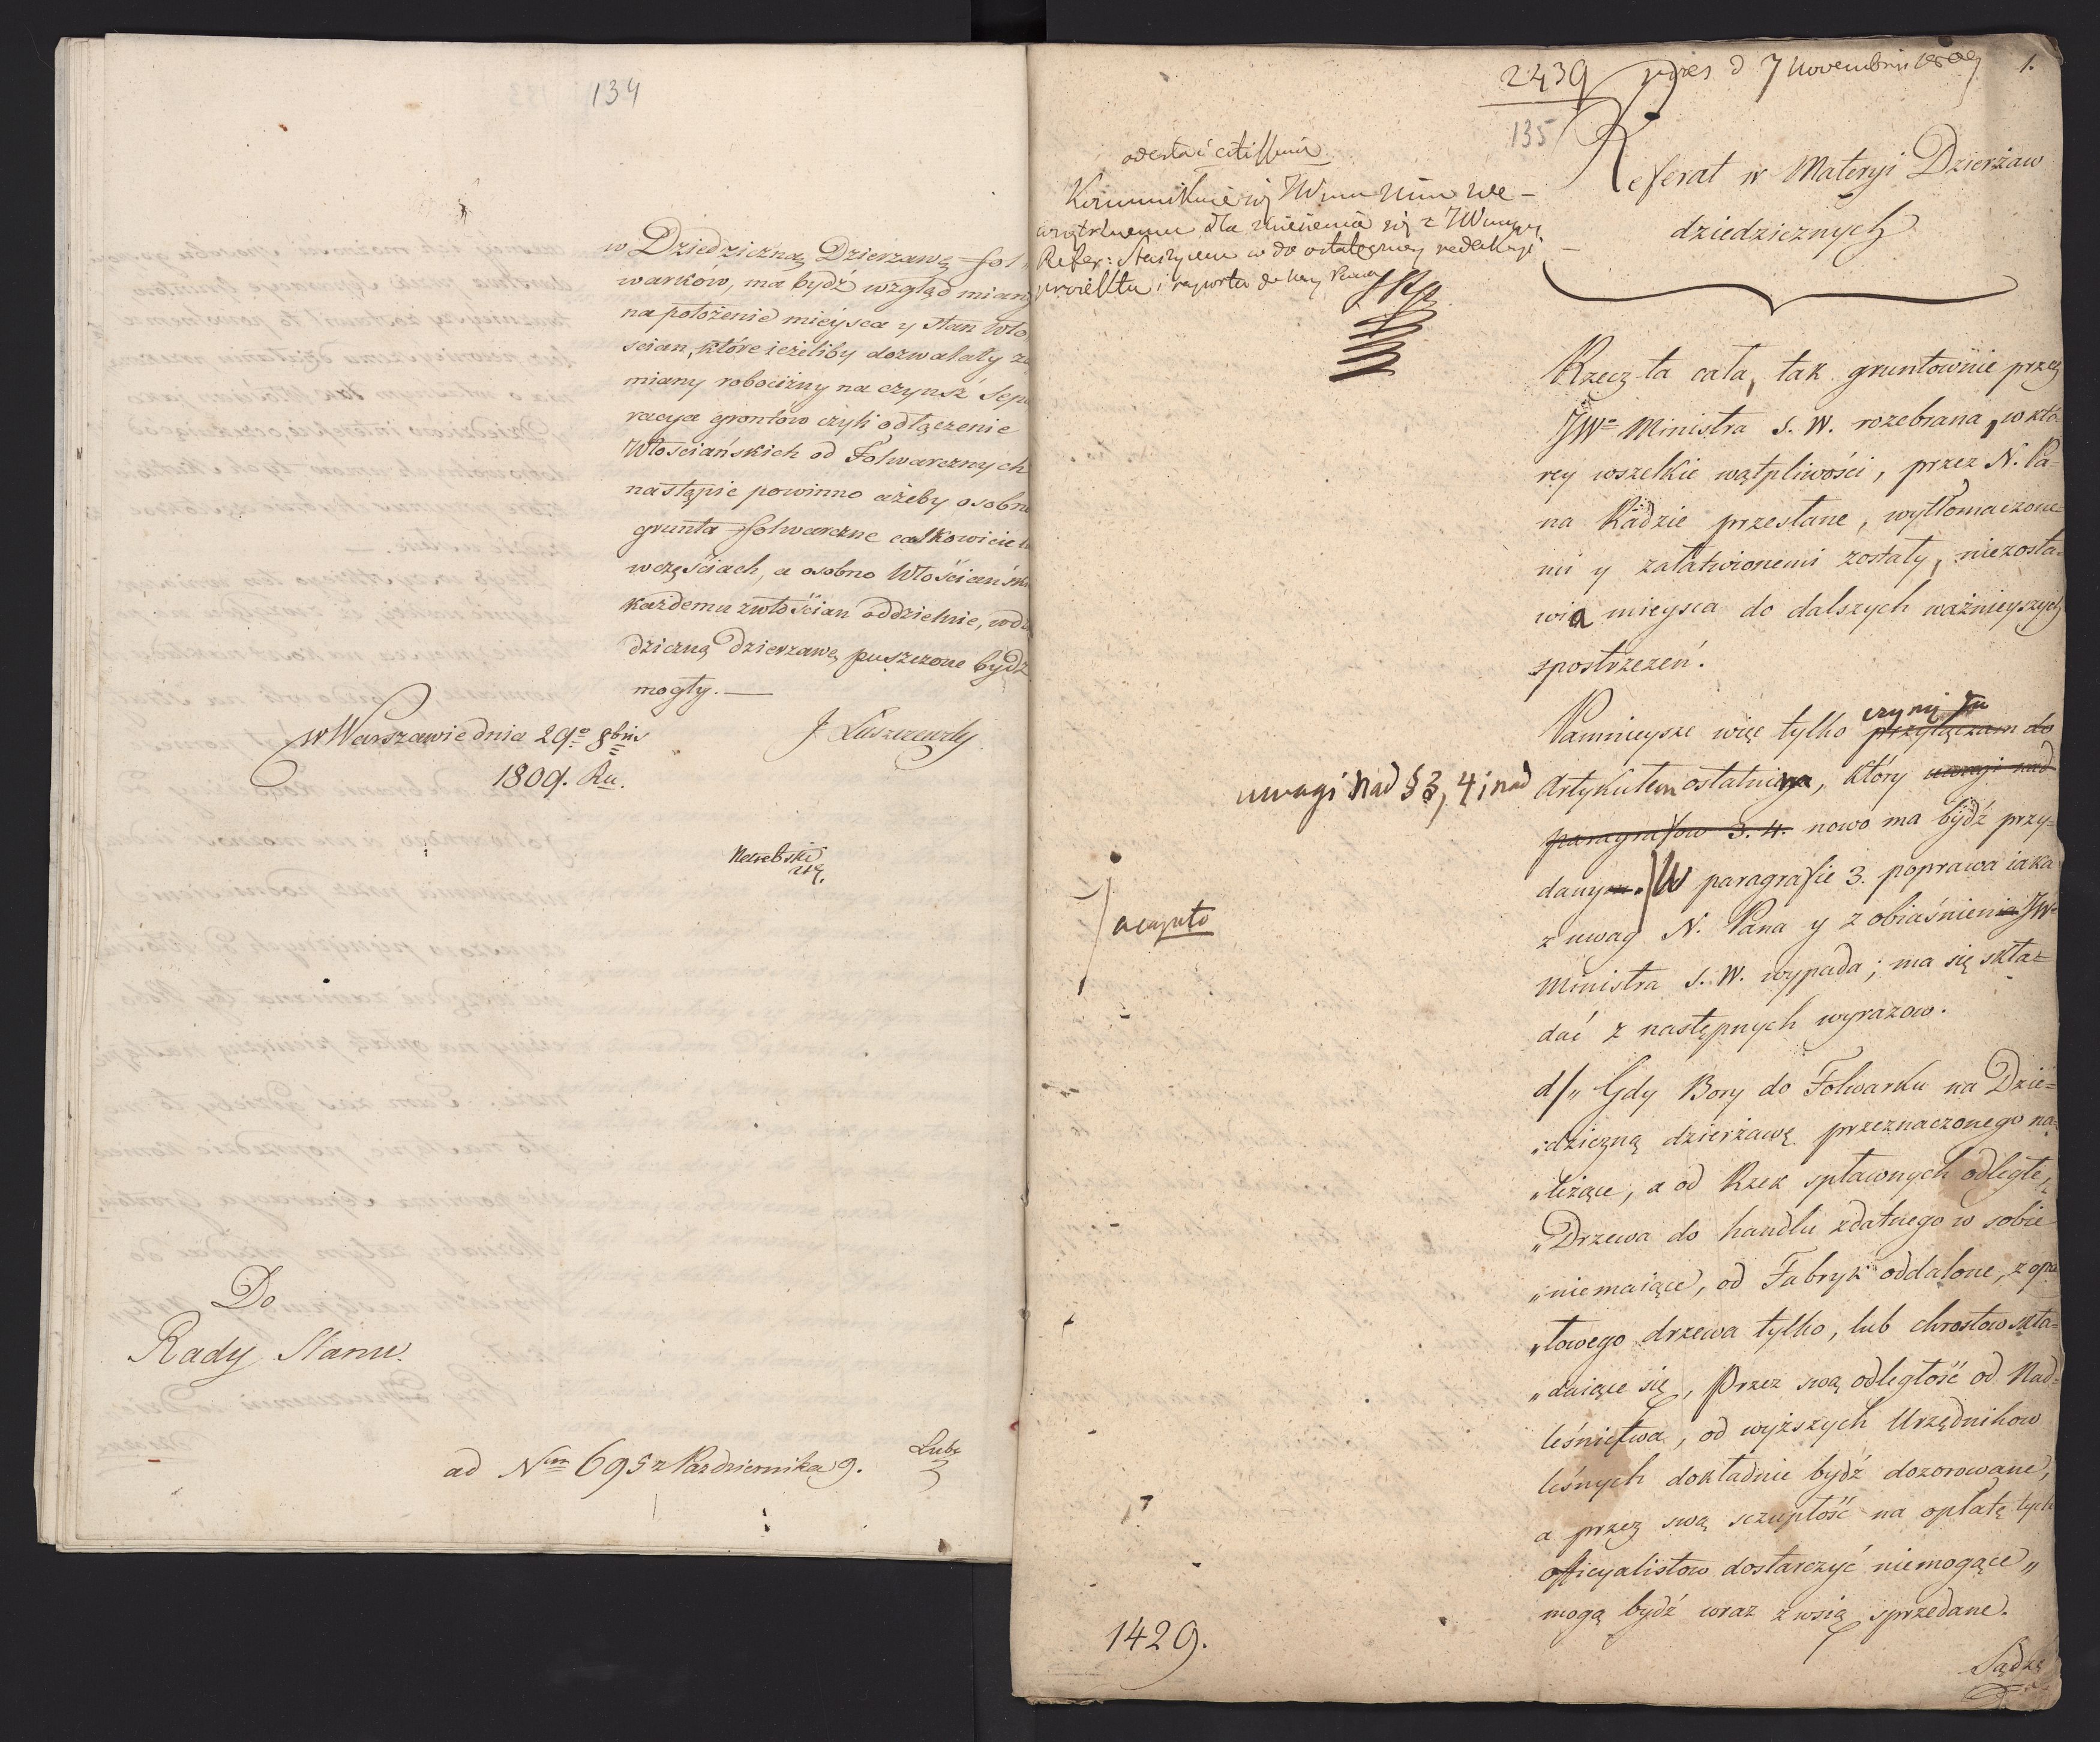 134
w Dziedziczną Dzierzawę fol
warków, ma bydź wzgląd mian
na położenie mieysca y stan Wło
scian, które ieżeliby dozwalały za
miany robocizny na czynsz Sepa
racya grontow czyli odłączenie
Włościańskich od Folwarcznych
nastąpić powinno ażeby osobno
grunta folwarczne całkowicie lu
w częściach, a osobno Włościański
każdemu z włościan oddzielnie, w dzie
dziczną dzierzawę puszczone bydź
mogły. —
w Warszawie dnia 29go 8bris
1809. Ru.
J Łuszczewsky
Do
Rady Stanu.
ad Num 695 z Października 9.
2439 pres d 7 Novembris 1809 1.
135
odesłać citissime
Referat w Materyi Dzierżaw
dziedzicznych
Kommunikuie się JW mu
wnętrznemu dla zniesienia się z JW
Refer: Staszycem do ostateczney redakcyi
proiektu i raportu
Rzecz ta cała, tak gruntownie przez
JWo Ministra S. W. rozebrana, w któ-
rey wszelkie wątpliwości, przez N. Pa-
na Radzie przesłane, wytłomaczone-
mi y załatwionemi zostały, niezosta-
wia mieysca do dalszych ważnieyszych
spostrzezeń.
Pomnieysze więc tylko przyłączam do czynię tu
uwagi nad § 3, 4 i nad
Artykułem ostatnim, który uwagi nad
paragrafow 3. 4. nowo ma bydź przy-
dany. W paragrafie 3. poprawa iaka
a capite
z uwag N. Pana y z obiaśnienia JWo
Ministra S. W. wypada; ma się skła-
dać z następnych wyrazow.
d/ „Gdy Bory do Folwarku na Dzie-
„dziczną dzierżawę przeznaczonego na-
„leżące, a od Rzek spławnych odległe,
„Drzewa do handlu zdatnego w sobie
„niemaiące, od Fabryk oddalone, z opa
„łowego drzewa tylko, lub chrostow skła-
„daiące się, Przez swą odległość od Nad-
leśnictwa, od wyższych Urzędnikow
leśnych dokładnie bydź dozorowane,
a przez swą szczupłość na opłatę tych
officyalistow dostarczyć niemogące„
mogą bydź wraz z wsią sprzedane.
Sądzę
1429.